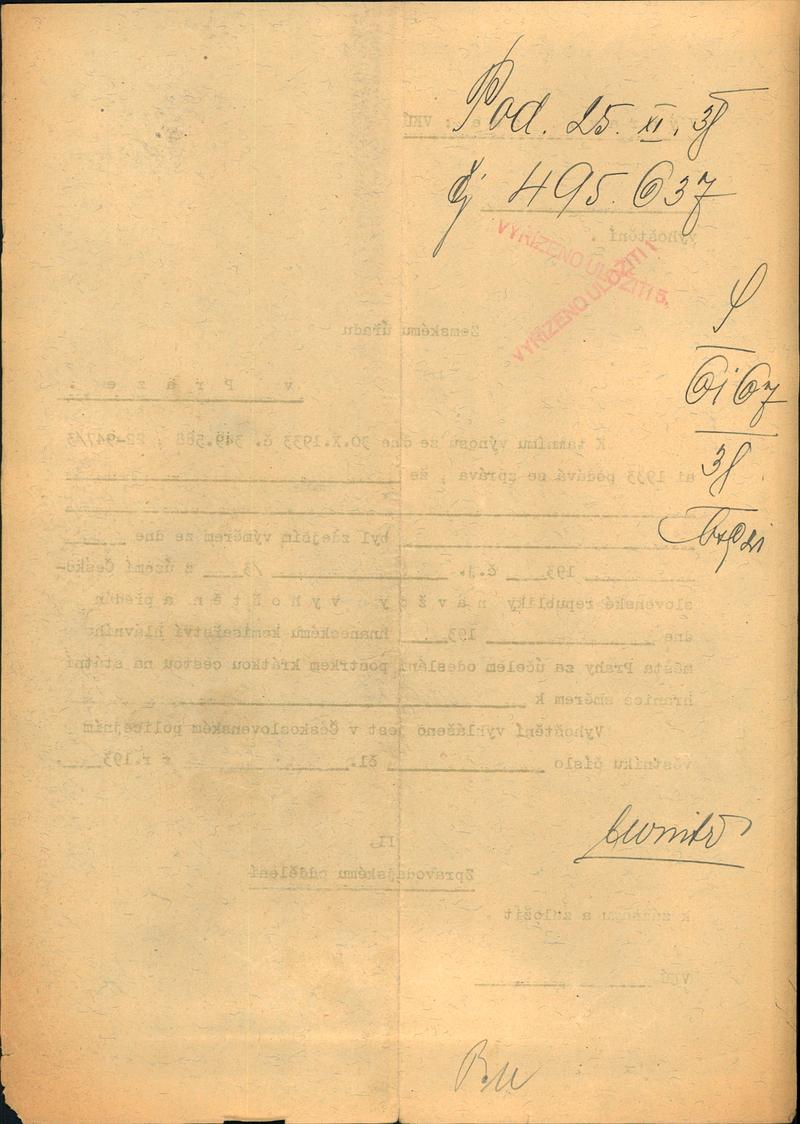 Pod. 25. XI. 38
čj 495.637
vyhoštění .
VYŘÍZENO ULOŽITI!
VYŘÍZENO ULOŽITI 5.
S
Zemskému úřadu
6167
v Praze .
38
K tamnímu výnosu ze dne 30.X.1933 č. 349.588 , 22-947/3
ai 1933 podává se zpráva , že
byl zdejším výměrem ze dne
193 č.j. /3 z území Česko-
slovenské republiky navždy vyhoštěn a předán
dne 193 hnaneckému komisařství hlavního
města Prahy za účelem odeslání postrkem krátkou cestou na státní
hranice směrem k
Vyhoštění vyhlášeno jest v Československém policejním
věstníku číslo čl. z r.193 .
II
Zpravodajskému oddělení
k záznamu a založit .